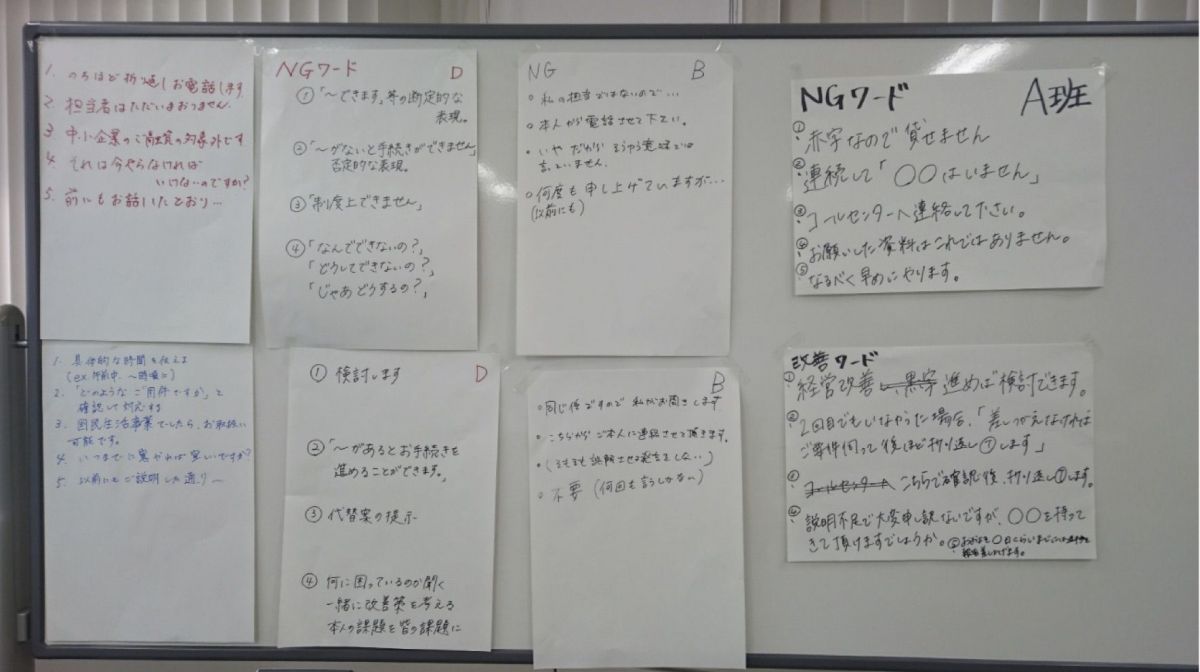 1. のちほど折り返しお電話します
2. 担当者はただいまおりません.
3 中小企業のご融資の対象外です
4. それは今やらなければ
いけないのですか?
5. 前にもお話いたとおり…
1. 具体的な時間を伝える
(ex.午前中、~時頃に)
2. 「どのようなご用件ですか」と
確認して対応する
3. 国民生活事業でしたら、お取扱い
可能です。
4. いつまでに寛やれば宜しいですか?
5. 以前にもご説明した通り~
NGワード D
① 「~できます」等の断定的な
表現。
② 「~がないと手続きができません」
否定的な表現。
③ 「制度上できません」
④ 「なんでできないの?」
「どうしてできないの?」
「じゃあどうするの?」
① 検討します D
② 「~があるとお手続きを
進めることができます。」
③ 代替案の提示
④ 何に困っているのか聞く
一緒に改善策を考える
本人の課題を皆の課題に
NG B
○ 私の担当ではないので…
○ 本人から電話させて下さい。
○ いや だから そういう意味では
言っていません.
○ 何度も申し上げていますが…
(以前にも)
B
○ 同じ係ですので 私がお聞きします
○ こちらから ご本人に連絡させて頂きます.
○ (そもそも誤解させる発言をしない)
○ 不要 (何回も言うしかない)
NGワード A班
① 赤字なので貸せません
② 連続して「○○はいません」
③ コールセンターへ連絡して下さい。
④ お願いした資料はこれではありません。
⑤ なるべく早めにやります。
改善ワード
① 経営改善 進めば検討できます。
② 2回目でもいなかった場合、「差しつかえなければ
ご要件伺って後ほど折り返し します」
③ コールセンターへ こちらで確認後、折り返し します。
④ 説明不足で大変申し訳ないですが、○○を持って
きて頂けますでしょうか。